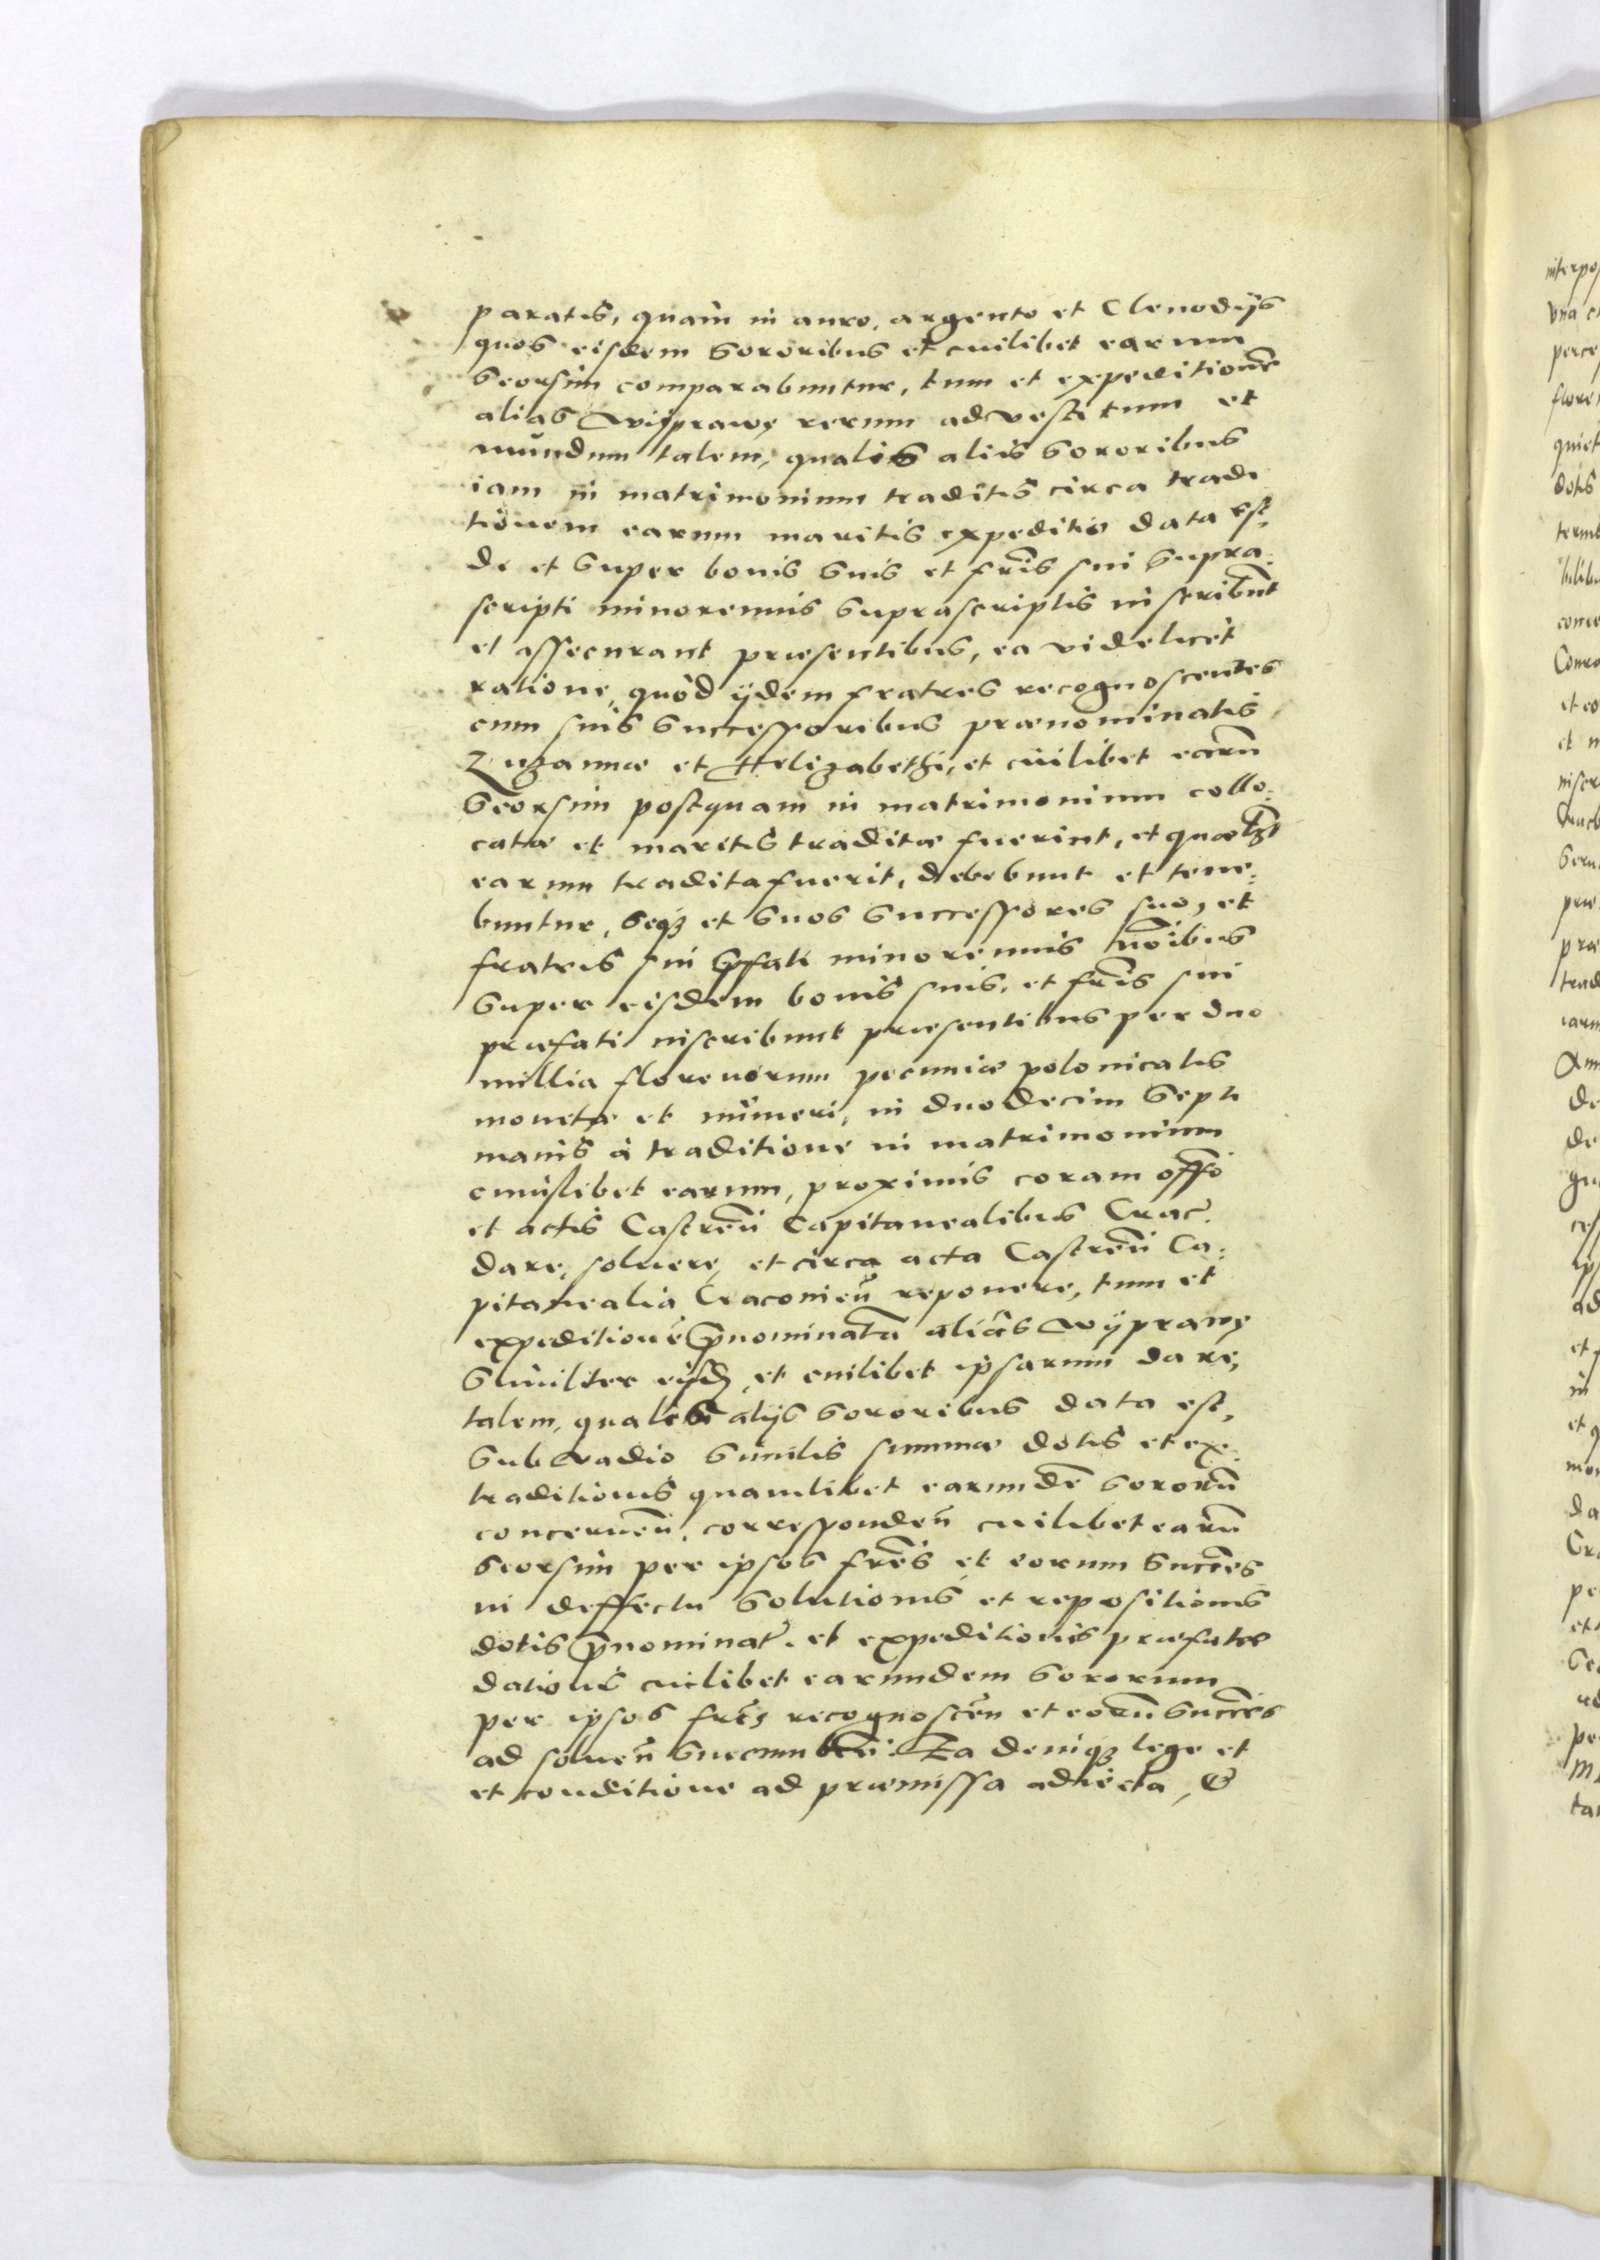 paratis, quam in auro, argento et Clenodijs
quos eisdem sororibus et cuilibet earum
seorsim comparabuntur, tum et expeditionẽ
alias Wyprawę rerum ad vestitum et
mundum talem, qualis aliis sororibus
iam in matrimonium traditis circa tradi
tionem earum maritis expeditio data est,
de et super bonis suis et fr̃is sui supra:
scripti minorennis suprascriptis inscribũt
et assecurant præsentibus, ea videlicet
ratione, quòd ijdem fratres recognoscentes
cum suis successoribus prænominatis
Zuzannæ et Helizabethi, et cuilibet earũ
seorsim postquam in matrimonium collo:
catæ et maritis traditæ fuerint, et quælibet
earum tradita fuerit, debebunt et tene:
buntur, seq₃ et suos successores suo, et
fratris sui p̃fati minorennis noĩbus
super eisdem bonis suis, et fr̃is sui
præfati inscribunt præsentibus per duo
millia florenorum pecuniæ polonicalis
monetæ et numeri, in duodecim septi
manis à traditione in matrimonium
cuiuslibet earum, proximis coram offõ
et actis Castreñ Capitanealibus Crac̃.
dare, soluere, et circa acta Castreñ Ca:
pitanealia Cracovieñ reponere, tum et
expeditionẽ p̃nominatã aliâs Wyprawę
similiter eisd̃, et cuilibet ipsarum dare,
talem, qualis alijs sororibus data est,
sub vadio similis summæ dotis et ex:
traditionis quamlibet earundẽ sororũ
concerneñ, correspondeñ cuilibet earũ
seorsim per ipsos fr̃es et eorum succẽs
in deffectu solutionis et repositionis
dotis p̃nominat̃. et expeditionis præfatæ
dationẽ cuilibet earundem sororum
per ipsos fr̃es recognosceñ et eorũ succẽs
ad solueñ succumbeñ. Ea deniq₃ lege et
et conditione ad præmissa adiecta, &